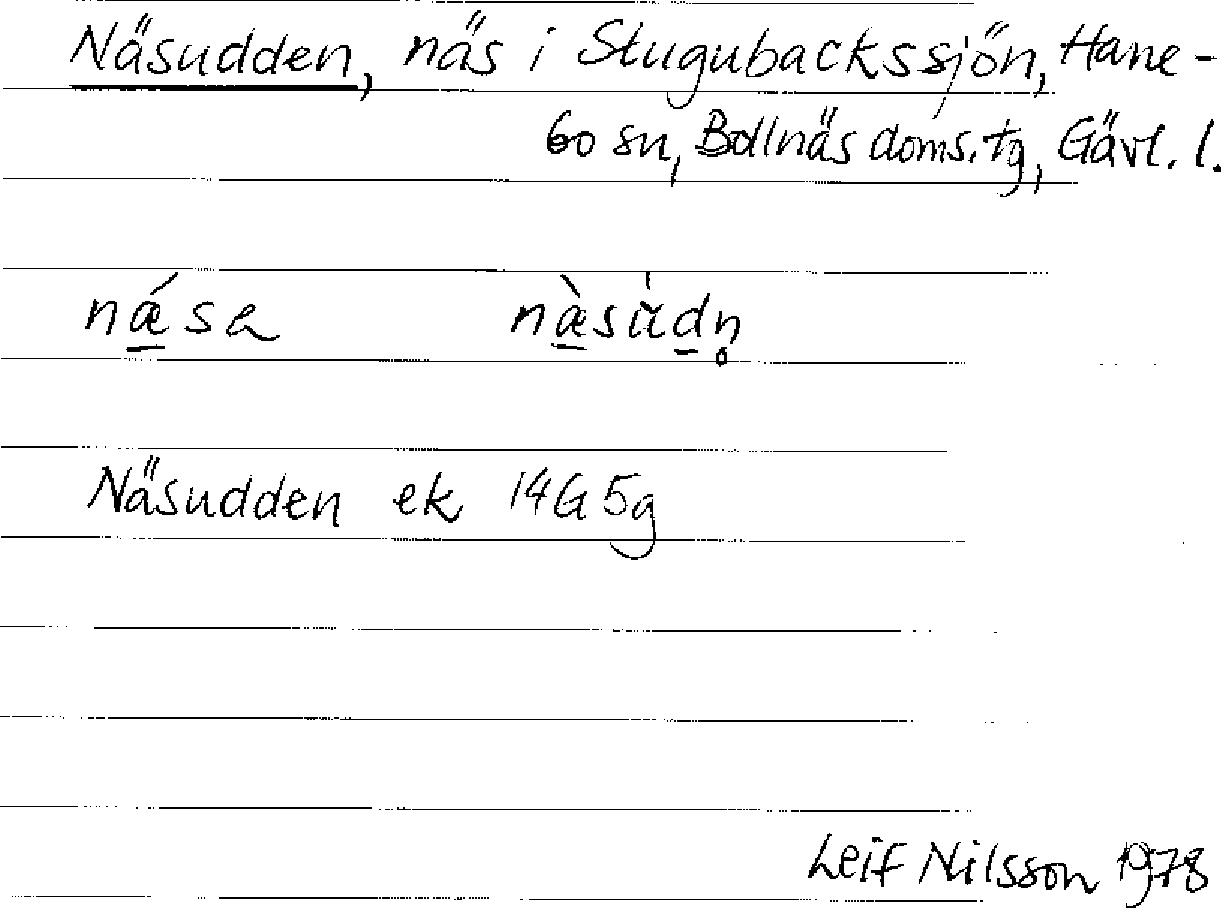 Näsudden, näs i Stugubackssjön, Hane-
bo sn, Bollnäs doms.tg, Gävl. l.
nǽsa næ̀sùdn̥
Näsudden ek 14G 5g
Leif Nilsson 1978